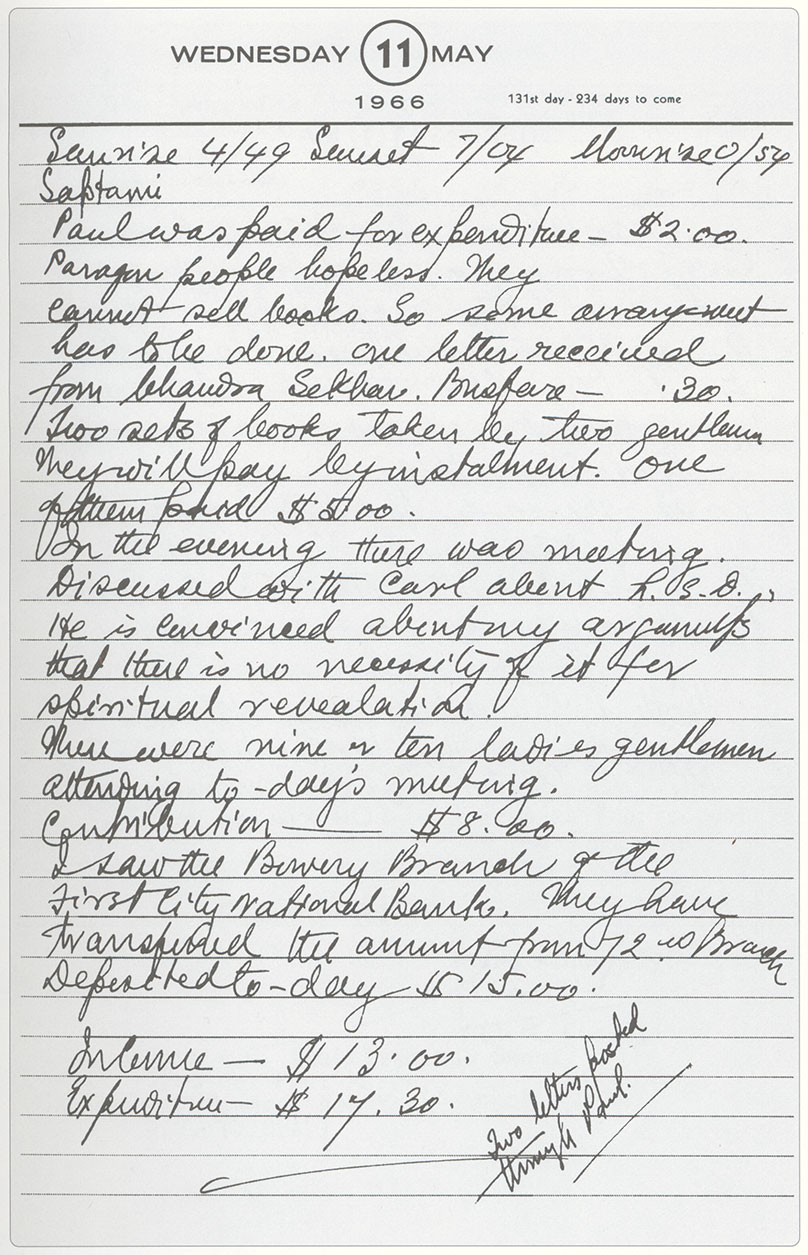 WEDNESDAY 11 MAY
1966 131st day - 234 days to come
Sunrise 4/49 Sunset 7/04 Moonrise 0/54
Saptami
Paul was paid for expenditure — $2.00.
Paragon people hopeless. They
cannot sell books. So some arrangement
has to be done. One letter received
from Chandra Sekhar. Busfare — .30.
Two sets of books taken by two gentlemen
They will pay by instalment. One
of them paid $5.00.
In the evening there was meeting.
Discussed with Carl about L.S.D.,
He is convinced about my arguments
that there is no necessity of it for
spiritual revealation.
There were nine or ten ladies gentlemen
attending to-day's meeting.
Contribution —— $8.00.
I saw the Bowery Branch of the
First City National Bank. They have
transferred the amount from 72 Branch
Deposited to-day $15.00.
Income — $13.00.
Expenditure — $17.30.
Two letters posted
through Paul.